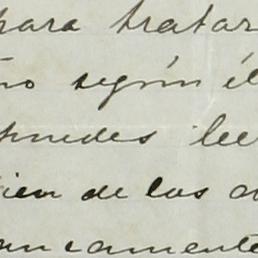 para tratar
no según él
puedes lee
ien de los
amente